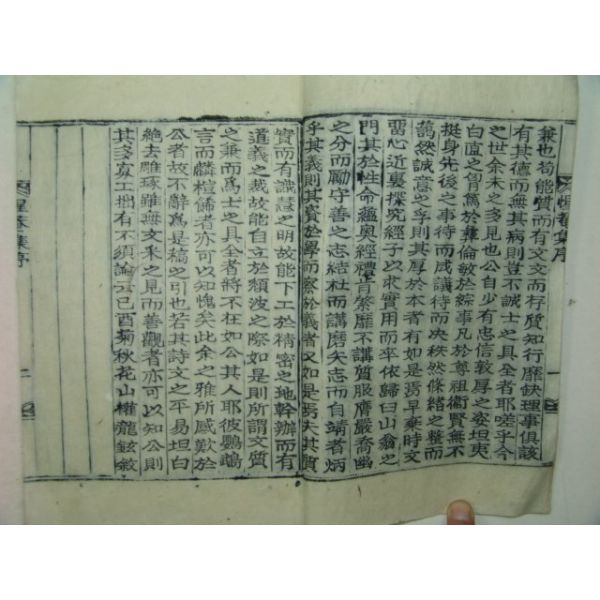 兼也苟能質而有文文而存質知行靡缺理事俱該
有其德而無其病則豈不誠士之具全者耶嗟乎今
之世余未之多見也公自少有忠信敦厚之姿坦夷
白直之胷篤於彜倫敏於綜事凡於尊祖衛賢無不
挺身先後之事待而成議待而決秩然條緒之整而
藹然誠意之孚則其厚於本者有如是焉早棄時文
留心近裏探究經子以求實用而卒依歸臼山翁之
門其於性命蘊奧經禮肯綮靡不講質服膺嚴喬幽
之分而勵守善之志結社而講磨矢志而自靖者炳
乎其義則其實於學而察於義者又如是焉夫其質
實而有識慧之明故能下工於精密之地幹辦而有
道義之裁故能自立於頹波之際如是則所謂文質
之兼而爲士之具全者將不在如公其人耶彼鸚鵡
言而麟楦儒者亦可以知愧矣此余之雅所感歎於
公者故不辭爲是稿之引也若其詩文之平易坦白
絶去雕琢雖無文采之見而善觀者亦可以知公則
其多寡工拙有不須論云己酉菊秋花山權龍鉉敘
集序
一